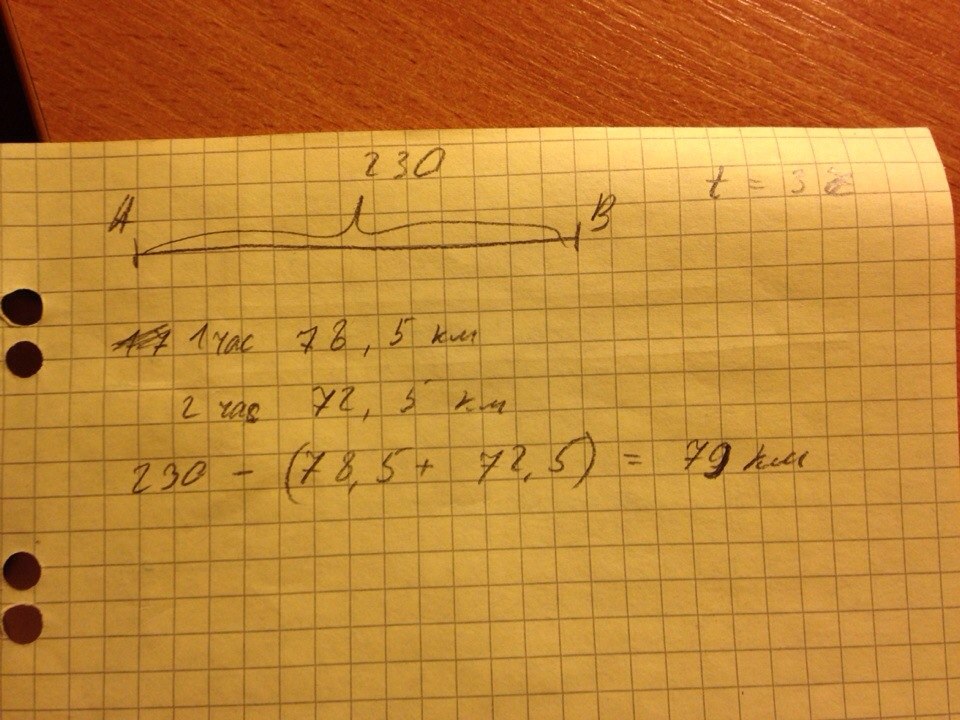 230
A B t = 3
1 час 78,5 км
2 час 72,5 км
230 - (78,5 + 72,5) = 79 км